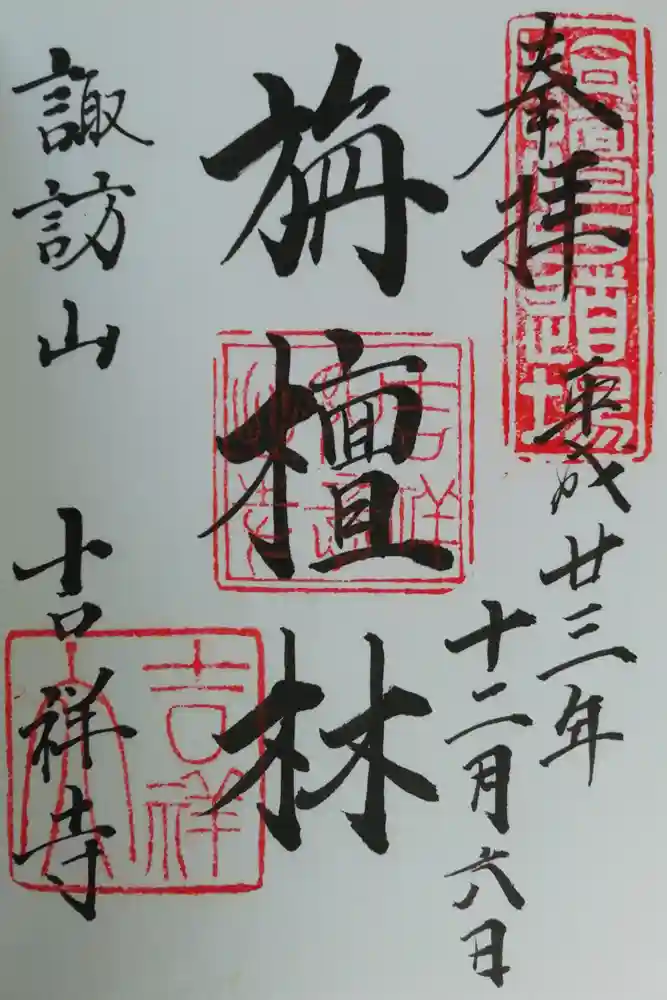 奉拝
平成廿三年
十二月六日
旃檀林
諏訪山 吉祥寺
吉祥